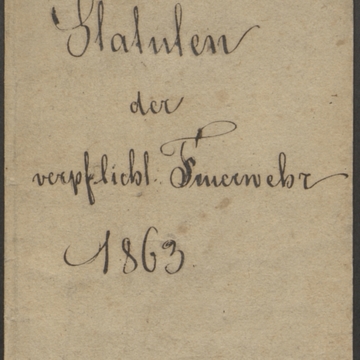 Statuten
der
verpflicht. Feuerwehr
1863